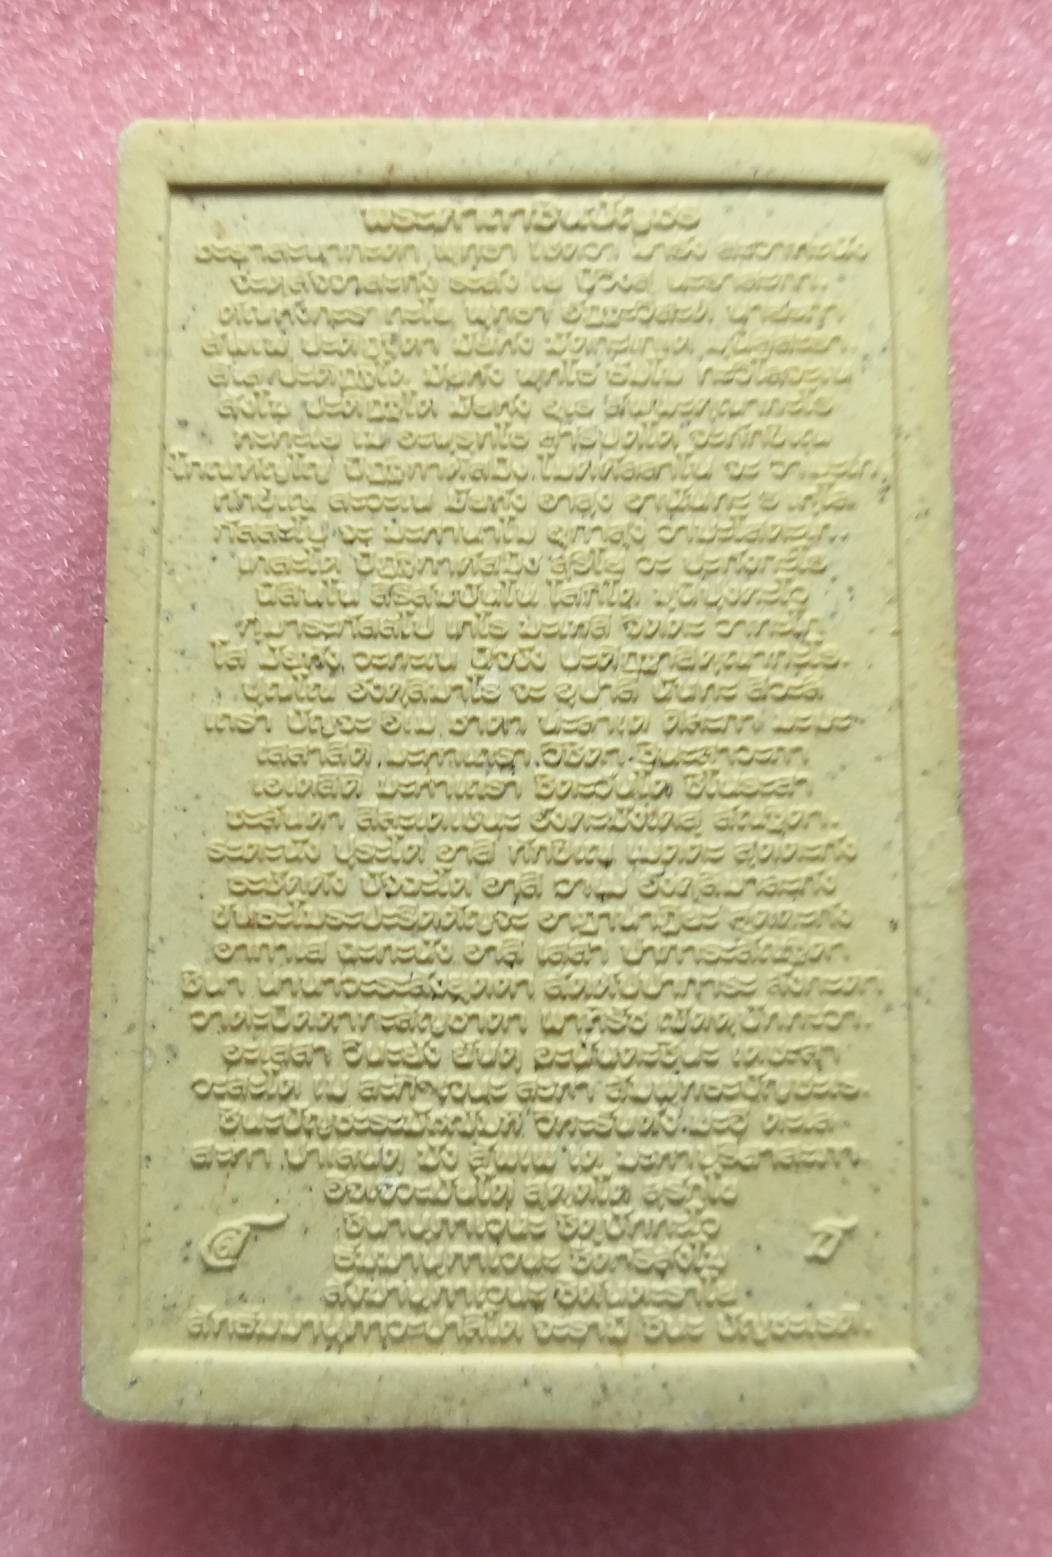 พระคาถาชินบัญชร
ชะยาสะนากะตา พุทธา เชตวา มารัง สะวาหะนัง
จะตุสัจจาสะภัง ระสัง เย ปิวิงสุ นะราสะภา.
ตัณหังกะรา ทะโย พุทธา อัฏฐะวีสะติ นายะกา
สัพเพ ปะติฏฐิตา มัยหัง มัตถะเกเต มุนิสสะรา.
สีเส ปะติฏฐิโต มัยหัง พุทโธ ธัมโม ทะวิโลจะเน
สังโฆ ปะติฏฐิโต มัยหัง อุเร สัพพะคุณากะโร
หะทะเย เม อะนุรุทโธ สารีปุตโต จะทักขิเณ
โกณฑัญโญ ปิฏฐิภาคัสมิง โมคคัลลาโน จะ วามะเก.
ทักขิเณ สะวะเน มัยหัง อาสุง อานันทะ ราหุโล
กัสสะโป จะ มะหานาโม อุภาสุง วามะโสตะเก.
เกสะโต ปิฏฐิภาคัสมิง สุริโย วะ ปะภังกะโร
นิสินโน สิริสัมปันโน โสภิโต มุนิปุงคะโว
กุมาระกัสสโป เถโร มะเหสี จิตตะ วาทะโก
โส มัยหัง วะทะเน นิจจัง ปะติฏฐาสิคุณากะโร.
ปุณโณ อังคุลิมาโร จะ อุปาลี นันทะ สีวะลี
เถรา ปัญจะ อิเม ชาตา นะลาเต ติละกา มะมะ
เสสาสีติ มะหาเถรา วิชิตา ชินะสาวะกา
เอเตสีติ มะหาเถรา ชิตะวันโต ชิโนระสา
ชะลันตา สีละเตเชนะ อังคะมังเคสุ สัณฐิตา.
ระตะนัง ปุระโต อาสิ ทักขิเณ เมตตะ สุตตะกัง
ธะชัคคัง ปัจฉะโต อาสิ วาเม อังคุลิมาละกัง
ขันธะโมระปะริตตัญจะ อาฏานาฏิยะ สุตตะกัง
อากาเส ฉะทะนัง อาสิ เสสา ปาการะสัณฐิตา
ชินา นานาวะระสังยุตตา สัตตัปปาการะ ลังกะตา
วาตะปิตตาทะสัญชาตา พาหิรัช ฌัตตุปัททะวา.
อะเสสา วินะยัง ยันตุ อะนันตะชินะ เตชะสา
วะสะโต เม สะกิจเจนะ สะทา สัมพุทธะปัญชะเร.
ชินะปัญชะระมัชฌัมหิ วิหะรันตัง มะฮี ตะเล
สะทา ปาเลนตุ มัง สัพเพ เต มะหาปุริสาสะภา.
อิจเจวะมันโต สุคุตโต สุรักโข
ชินานุภาเวนะ ชิตุปัททะโว
ธัมมานุภาเวนะ ชิตาริสังโฆ
สังฆานุภาเวนะ ชิตันตะราโย
สัทธัมมานุภาวะปาลิโต จะรามิ ชินะ ปัญชะเรติ.